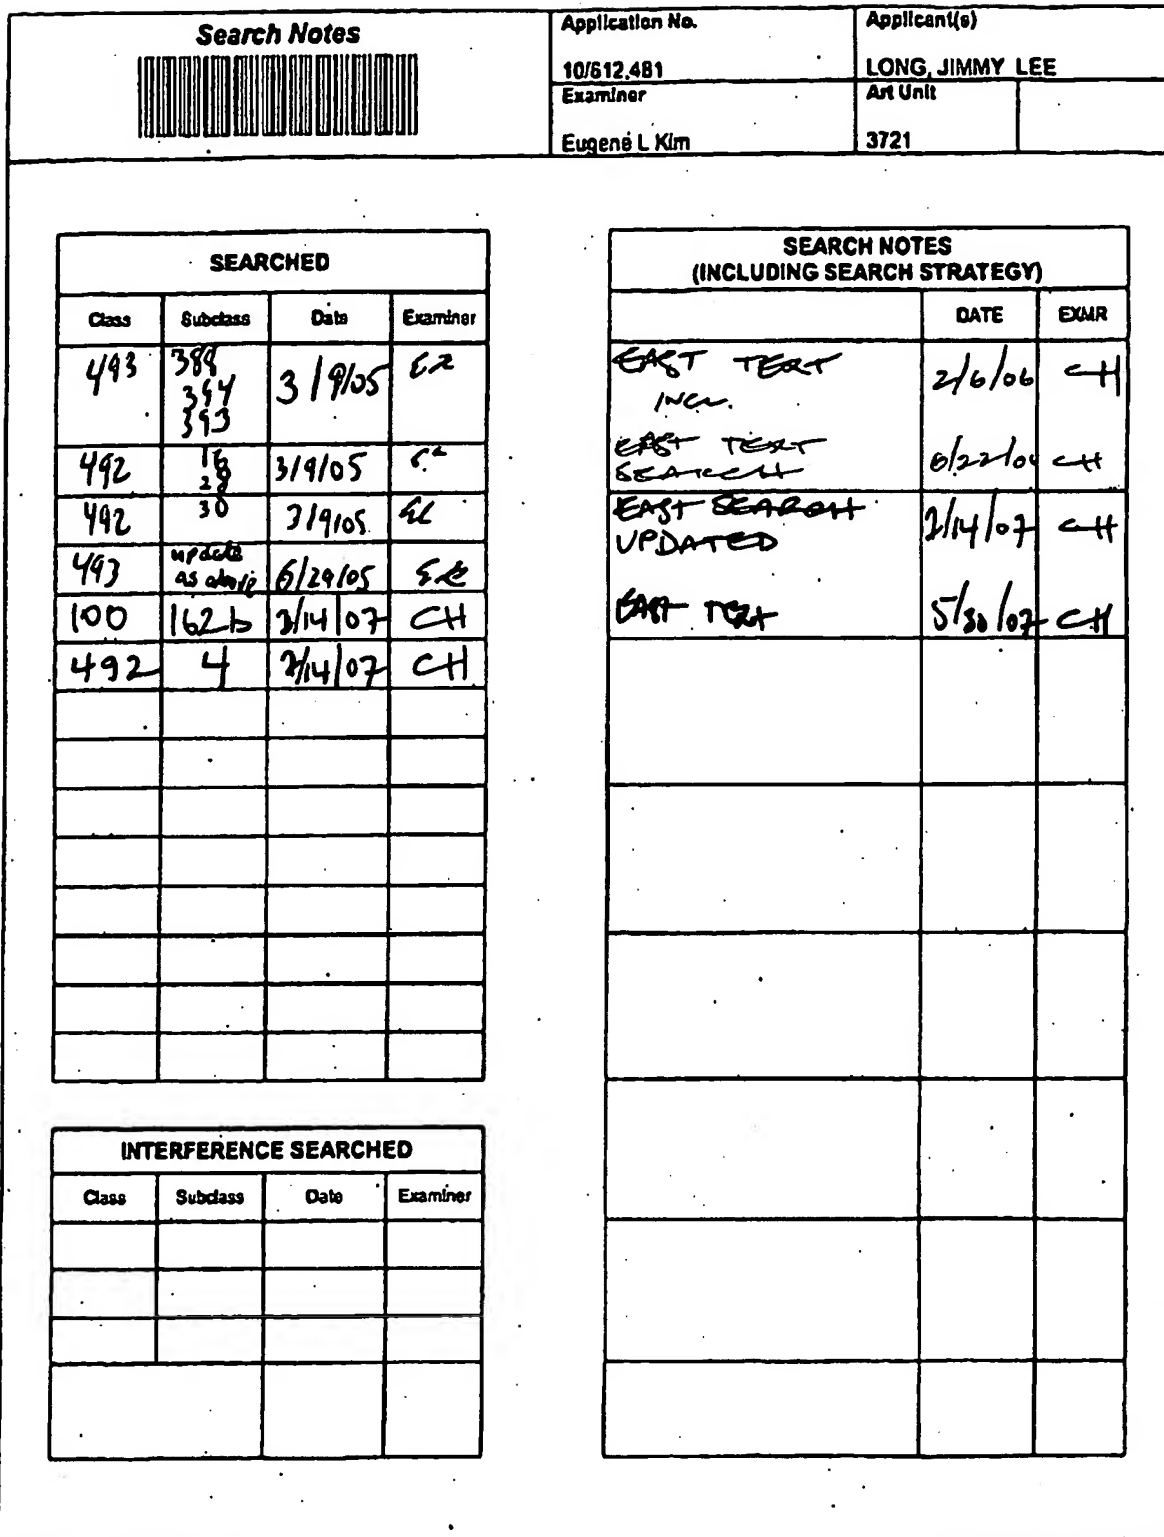 Search Notes
Application No.
10/612,481
Applicant(s)
LONG, JIMMY LEE
Examiner
Eugene L Kim
Art Unit
3721
SEARCHED
Class Subclass Date Examiner
493 388 3/9/05 EK
394
393
492 16 3/9/05
28
492 30 3/9/05 EK
493 update 6/29/05 EK
as above
100 162b 2/14/07 CH
492 4 2/14/07 CH
INTERFERENCE SEARCHED
Class Subclass Date Examiner
SEARCH NOTES
(INCLUDING SEARCH STRATEGY)
DATE EXMR
EAST TEXT 2/6/06 CH
INCL.
EAST TEXT 6/22/06 CH
SEARCH
EAST SEARCH 2/14/07 CH
UPDATED
EAST TEXT 5/30/07 CH